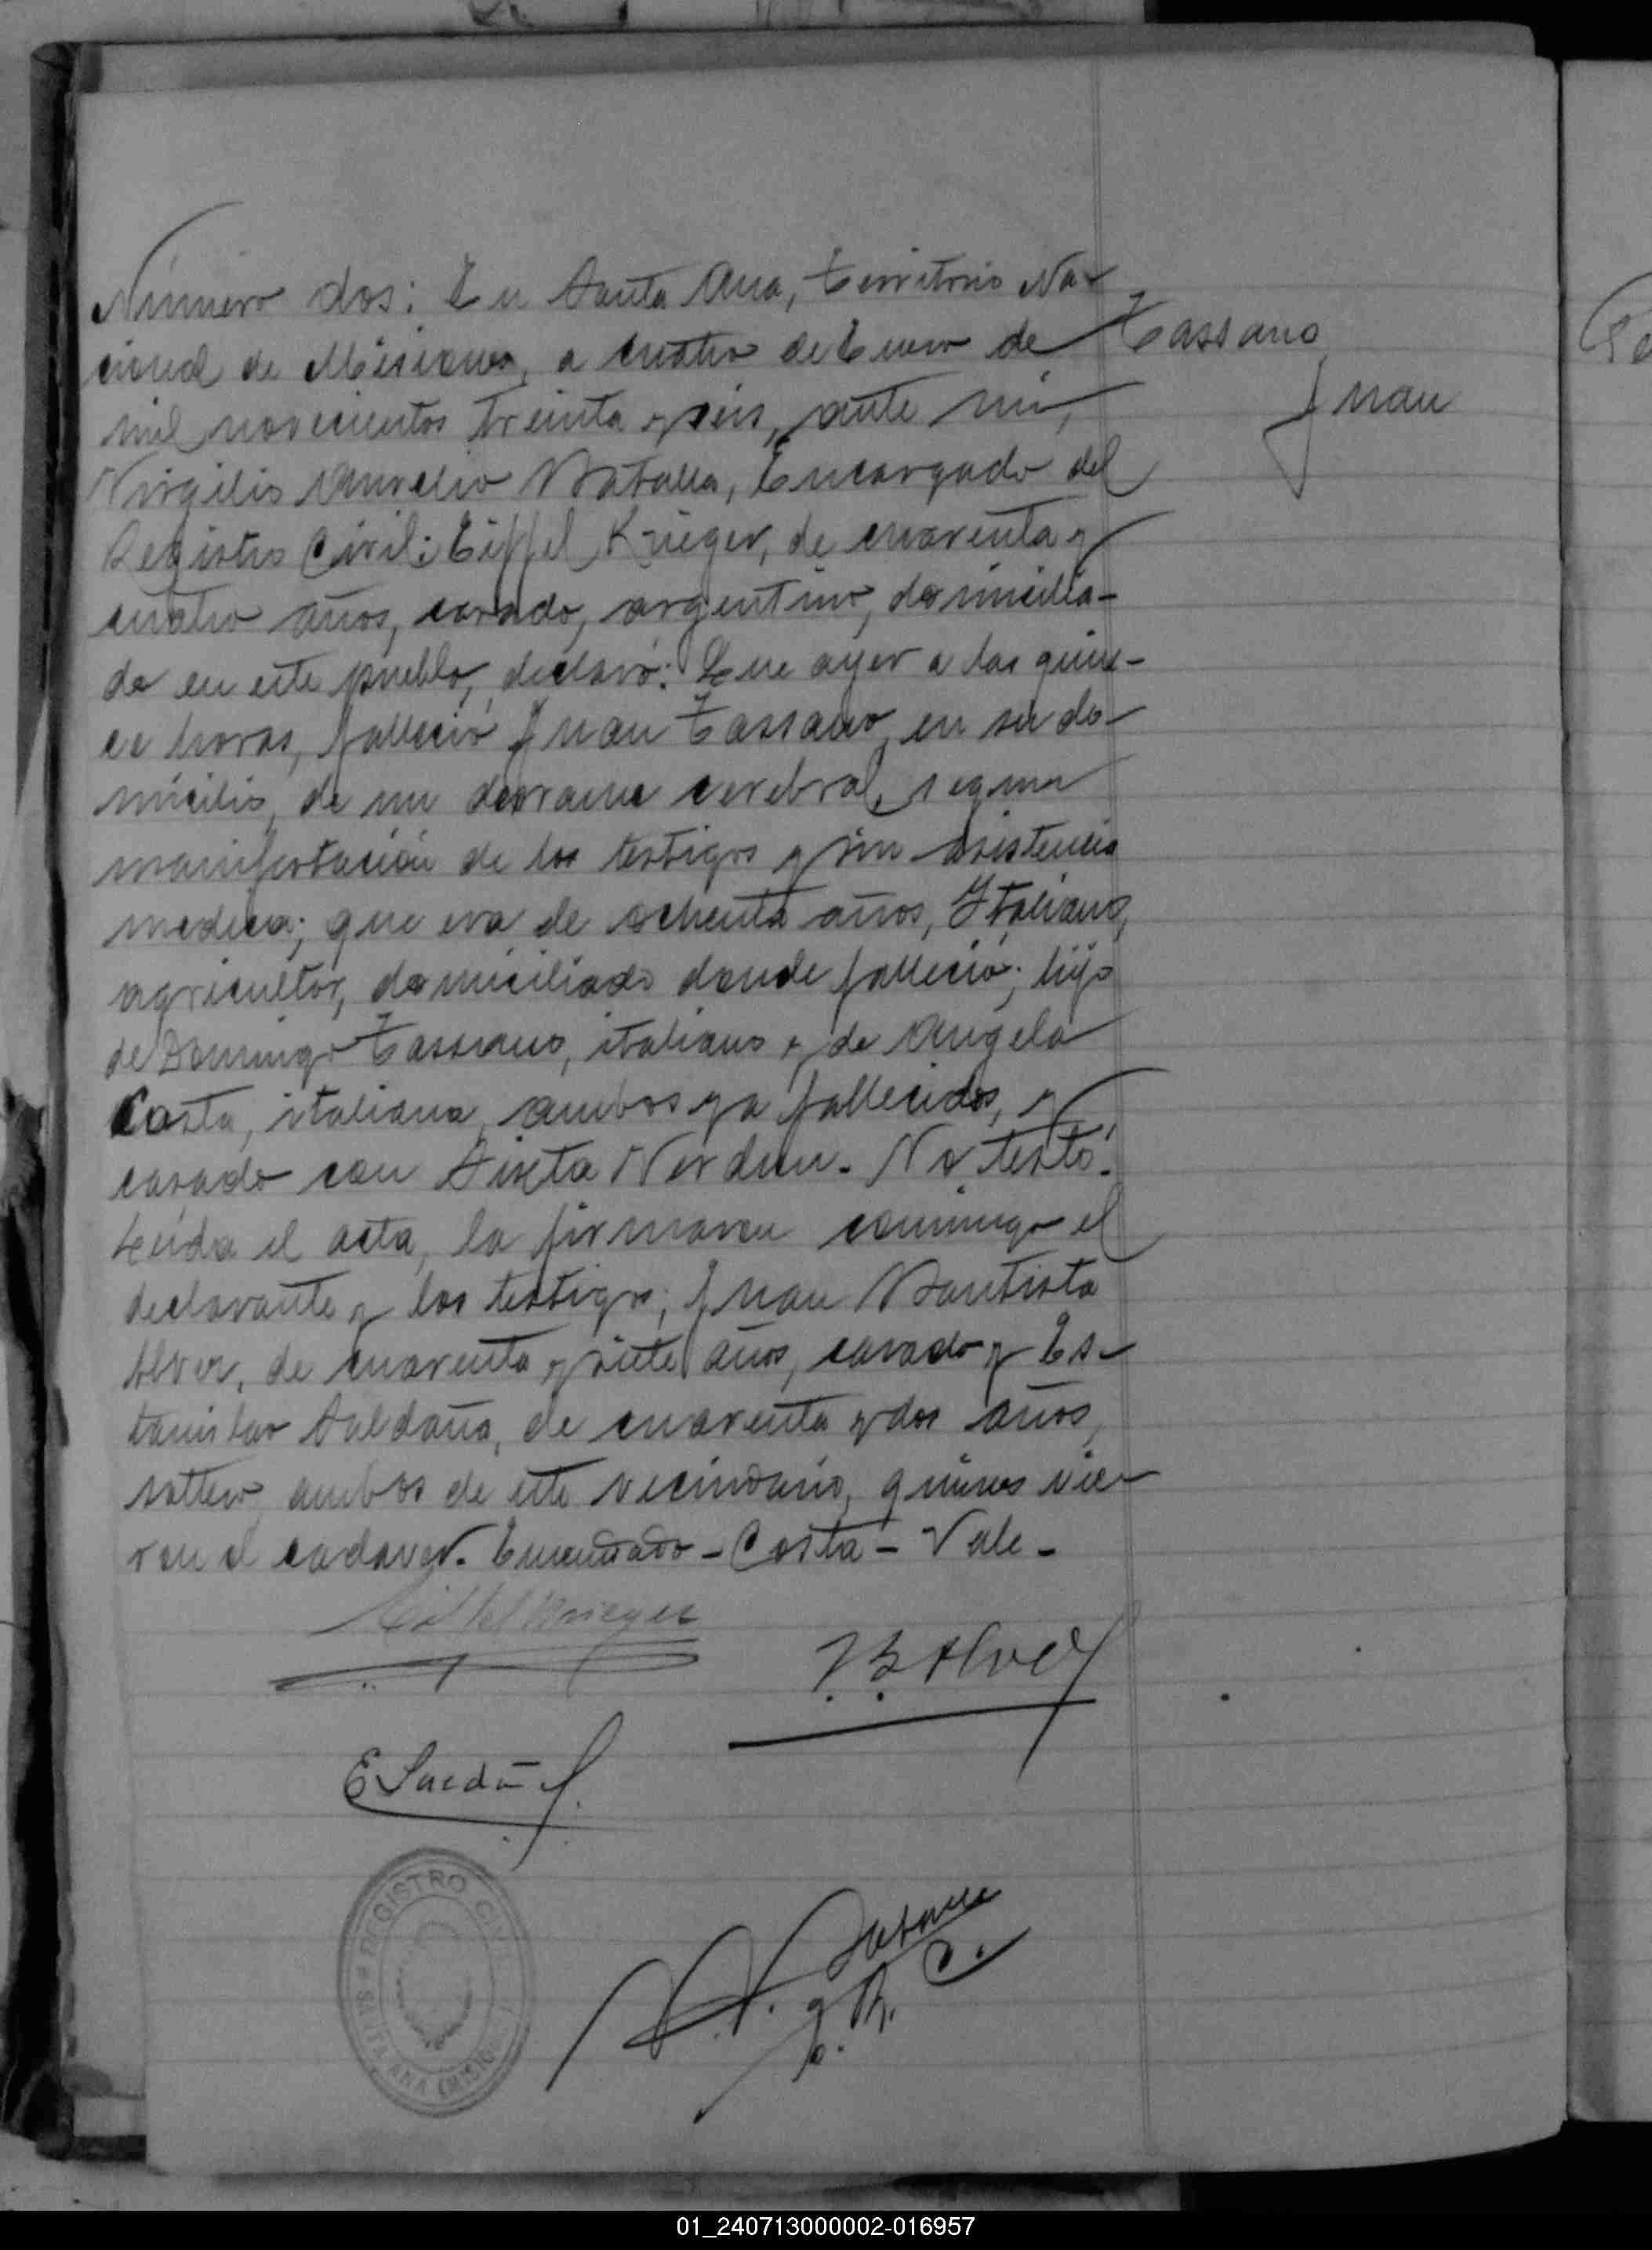 Número dos: En Santa Ana, Territorio Na-
cional de Misiones, a cuatro de Enero de
mil novecientos treinta y seis, ante mi,
Virgilio Aurelio Batalla, Encargado del
Registro Civil: Eiffel Krieger, de cuarenta y
cuatro años, casado, argentino, domicilia-
do en este pueblo, declaró: Que ayer a las quin-
ce horas, falleció Juan Tassano, en su do-
micilio, de un derrame cerebral, segun
manifestación de los testigos y sin asistencia
medica; que era de ochenta años, Italiano,
agricultor, domiciliado donde falleció; hijo
de Domingo Tassano, italiano y de Angela
Costa, italiana, ambos ya fallecidos, y
casado con Sixta Verdun. No testó.
Leida el acta, la firmaron conmigo el
declarante y los testigos; Juan Bautista
Alver, de cuarenta y siete años, casado y Es-
tanislao Saldaña, de cuarenta y dos años,
soltero, ambos de este vecindario, quienes vie-
ron el cadaver. Enmendado - Costa - Vale -
Tassano
Juan
Eiffel Krieger
J. B. Alver
E Saldañ
REGISTRO CIVIL
SANTA ANA (MISIONES)
01_240713000002-016957